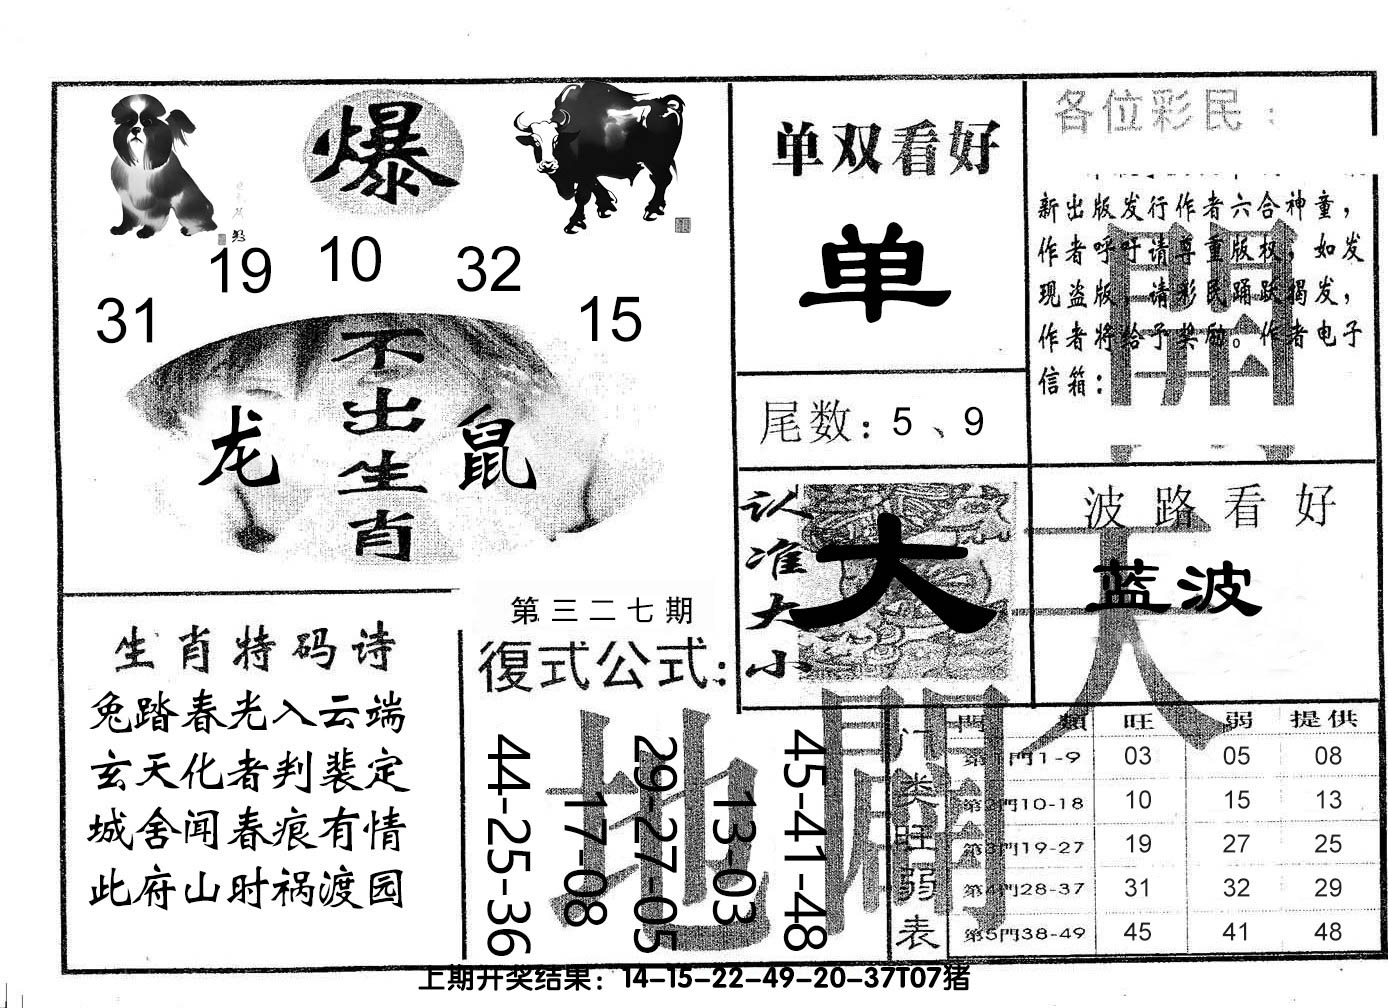 爆
19 10 32
31 15
不出生肖
龙 鼠
单双看好
单
尾数：5、9
各位彩民：
新出版发行作者六合神童，
作者呼吁请尊重版权，如发
现盗版，请彩民踊跃揭发，
作者将给予奖励。作者电子
信箱：
认准大小
大
波路看好
蓝波
天
開
生肖特码诗
兔踏春光入云端
玄天化者判裴定
城舍闻春痕有情
此府山时祸渡园
第三二七期
復式公式：
44-25-36
17-08
29-27-05
13-03
45-41-48
地
門類 旺 弱 提供
门类旺弱表
第1門1-9 03 05 08
第2門10-18 10 15 13
第3門19-27 19 27 25
第4門28-37 31 32 29
第5門38-49 45 41 48
上期开奖结果：14-15-22-49-20-37T07猪